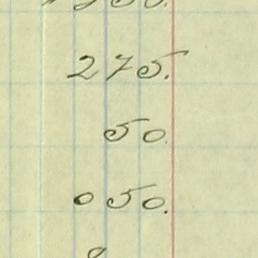 275.
50.
050.